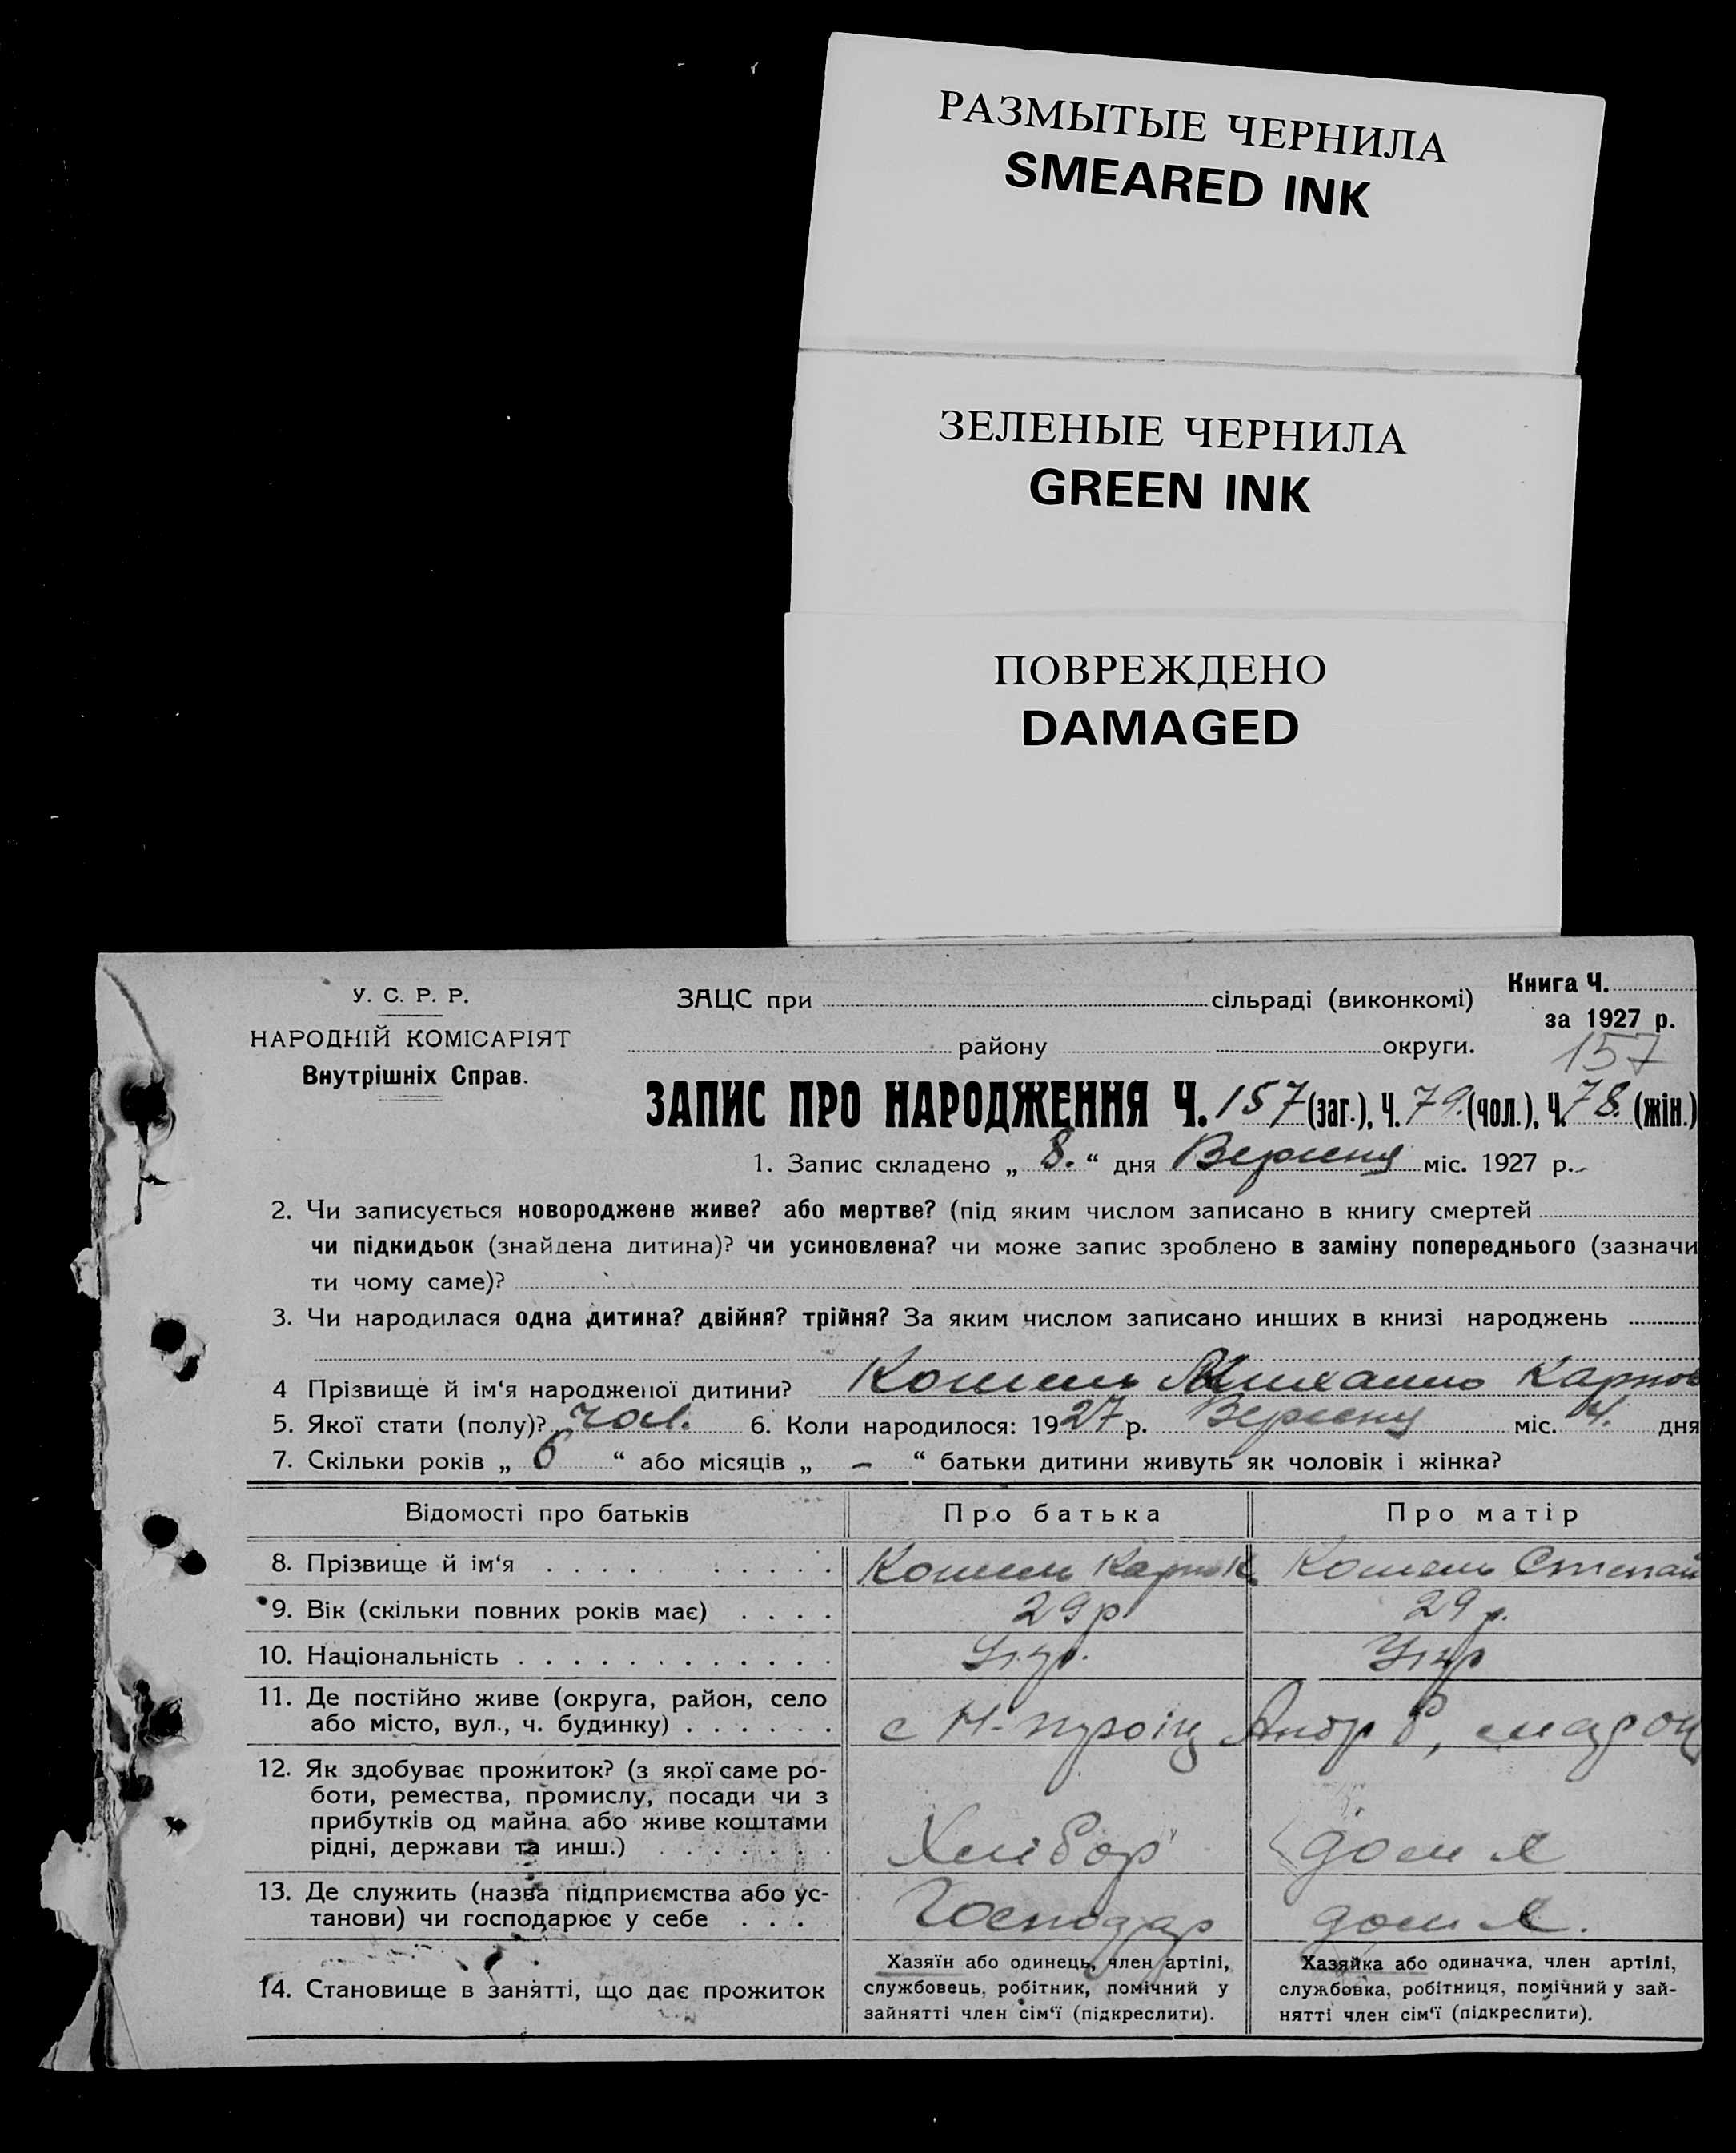 РАЗМЫТЫЕ ЧЕРНИЛА
SMEARED INK
ЗЕЛЕНЫЕ ЧЕРНИЛА
GREEN INK
ПОВРЕЖДЕНО
DAMAGED
У. С. Р. Р.
НАРОДНІЙ КОМІСАРІЯТ
Внутрішніх Справ.
ЗАЦС при сільраді (виконкомі)
Книга Ч.
за 1927 р.
району округи.
157
ЗАПИС ПРО НАРОДЖЕННЯ Ч. 157 (заг.), Ч. 79. (чол.), Ч. 78. (жін.)
1. Запис складено „ 8. “ дня Вересня міс. 1927 р.
2. Чи записується новороджене живе? або мертве? (під яким числом записано в книгу смертей
чи підкидьок (знайдена дитина)? чи усиновлена? чи може запис зроблено в заміну попереднього (зазначи
ти чому саме)?
3. Чи народилася одна дитина? двійня? трійня? За яким числом записано инших в книзі народжень
4 Прізвище й ім‘я народженої дитини? Кошель Михайло Карпов
5. Якої стати (полу)? чол. 6. Коли народилося: 1927 р. Вересня міс. 4. дня
7. Скільки років „ 6 “ або місяців „ – “ батьки дитини живуть як чоловік і жінка?
Відомості про батьків Про батька Про матір
8. Прізвище й ім‘я Кошель Карпо К. Кошель Степан
9. Вік (скільки повних років має) 29 р 29 р.
10. Національність Укр. Укр
11. Де постійно живе (округа, район, село
або місто, вул., ч. будинку) с Н-
12. Як здобуває прожиток? (з якої саме ро-
боти, ремества, промислу, посади чи з
прибутків од майна або живе коштами
рідні, держави та инш.) Хлібор
13. Де служить (назва підприємства або ус-
танови) чи господарює у себе Господар
14. Становище в занятті, що дає прожиток
Хазяїн або одинець, член артілі,
службовець, робітник, помічний у
зайнятті член сім‘ї (підкреслити).
Хазяйка або одиначка, член артілі,
службовка, робітниця, помічний у зай-
нятті член сім‘ї (підкреслити).